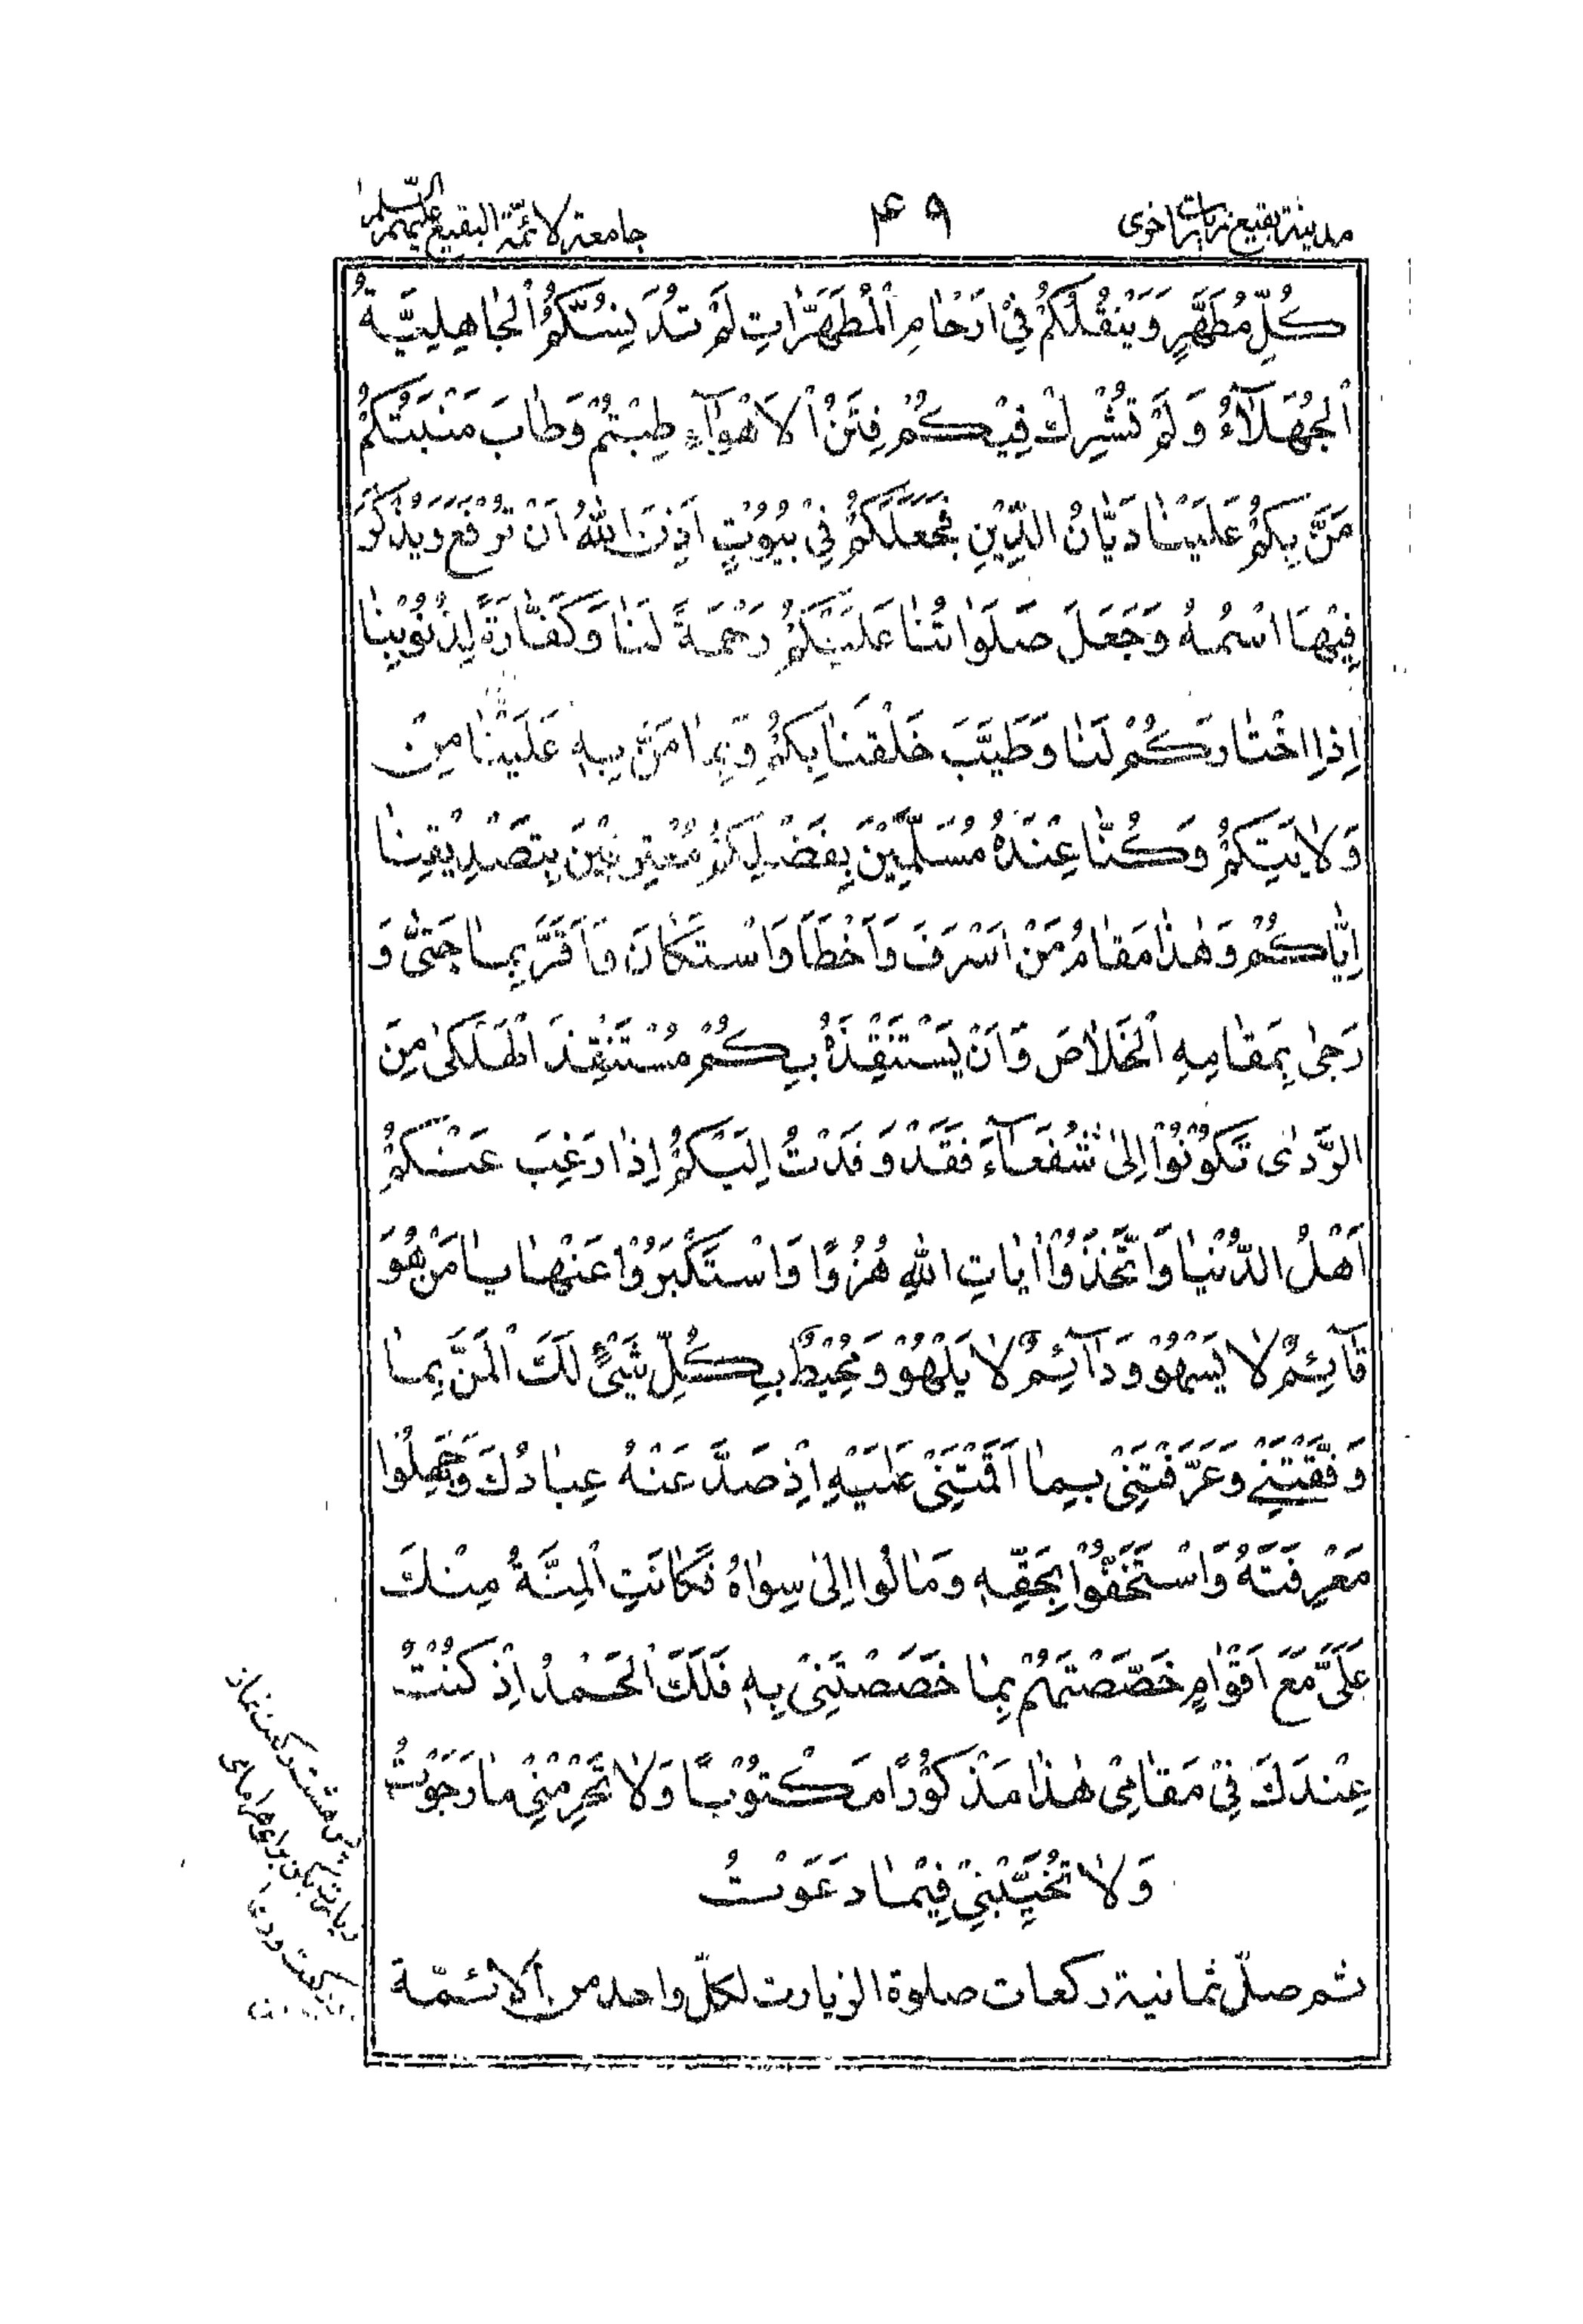 مدینة بقیع زیارات اخوی
۴۹
جامعة لائمّة البقیع علیهم السّلام
كُلِّ مُطَهَّرٍ وَيَنْقُلُكُمْ فِيْ اَرْحَامِ الْمُطَهَّرَاتِ لَمْ تُدَنِّسْكُمُ الْجَاهِلِيَّةُ
الْجُهَلَآءُ وَلَمْ تَشْرِكْ فِيْكُمْ فِتَنُ الْاَهْوَآءِ طِبْتُمْ وَطَابَ مَنْبَتُكُمْ
مَنَّ بِكُمْ عَلَيْنَا دَيَّانُ الدِّيْنِ فَجَعَلَكُمْ فِيْ بُيُوْتٍ اَذِنَ اللهُ اَنْ تُرْفَعَ وَيُذْكَرَ
فِيْهَا اسْمُهُ وَجَعَلَ صَلَوَاتُنَا عَلَيْكُمْ رَحْمَةً لَنَا وَكَفَّارَةً لِذُنُوْبِنَا
اِذِ اخْتَارَكُمْ لَنَا وَطَيَّبَ خَلْقَنَا بِكُمْ وَبِمَا مَنَّ بِهِ عَلَيْنَا مِنْ
وَلَايَتِكُمْ وَكُنَّا عِنْدَهُ مُسَلِّمِيْنَ بِفَضْلِكُمْ مُعْتَرِفِيْنَ بِتَصْدِيْقِنَا
اِيَّاكُمْ وَهٰذَا مَقَامُ مَنْ اَسْرَفَ وَاَخْطَاَ وَاسْتَكَانَ وَاَقَرَّ بِمَا جَنٰى وَ
رَجٰى بِمَقَامِهِ الْخَلَاصَ وَاَنْ يَسْتَنْقِذَهُ بِكُمْ مُسْتَنْقِذُ الْهَلْكٰى مِنَ
الرَّدٰى تَكُوْنُوْا اِلٰى شُفَعَآءَ فَقَدْ وَفَدْتُ اِلَيْكُمْ اِذَا رَغِبَ عَنْكُمْ
اَهْلُ الدُّنْيَا وَاتَّخَذُوْا اٰيَاتِ اللهِ هُزُوًا وَاسْتَكْبَرُوْا عَنْهَا يَا مَنْ هُوَ
قَآئِمٌ لَا يَسْهُوْ وَدَآئِمٌ لَا يَلْهُوْ وَمُحِيْطٌ بِكُلِّ شَيْئٍ لَكَ الْمَنُّ بِمَا
وَفَّقْتَنِيْ وَعَرَّفْتَنِيْ بِمَا اَقَمْتَنِيْ عَلَيْهِ اِذْ صَدَّ عَنْهُ عِبَادُكَ وَجَهِلُوْا
مَعْرِفَتَهُ وَاسْتَخَفُّوْا بِحَقِّهِ وَمَالُوْا اِلٰى سِوَاهُ فَكَانَتِ الْمِنَّةُ مِنْكَ
عَلَيَّ مَعَ اَقْوَامٍ خَصَّصْتَهُمْ بِمَا خَصَصْتَنِيْ بِهِ فَلَكَ الْحَمْدُ اِذْ كُنْتُ
عِنْدَكَ فِيْ مَقَامِيْ هٰذَا مَذْكُوْرًا مَكْتُوْبًا وَلَا تَحْرِمْنِيْ مَا رَجَوْتُ
وَلَا تُخَيِّبْنِيْ فِيْمَا دَعَوْتُ
ثم صلّ ثمانية ركعات صلوة الزيارت لكلّ واحد من الائمّة
پس هشت ركعت نماز
زیارت بكن برای هر امامی
ركعت